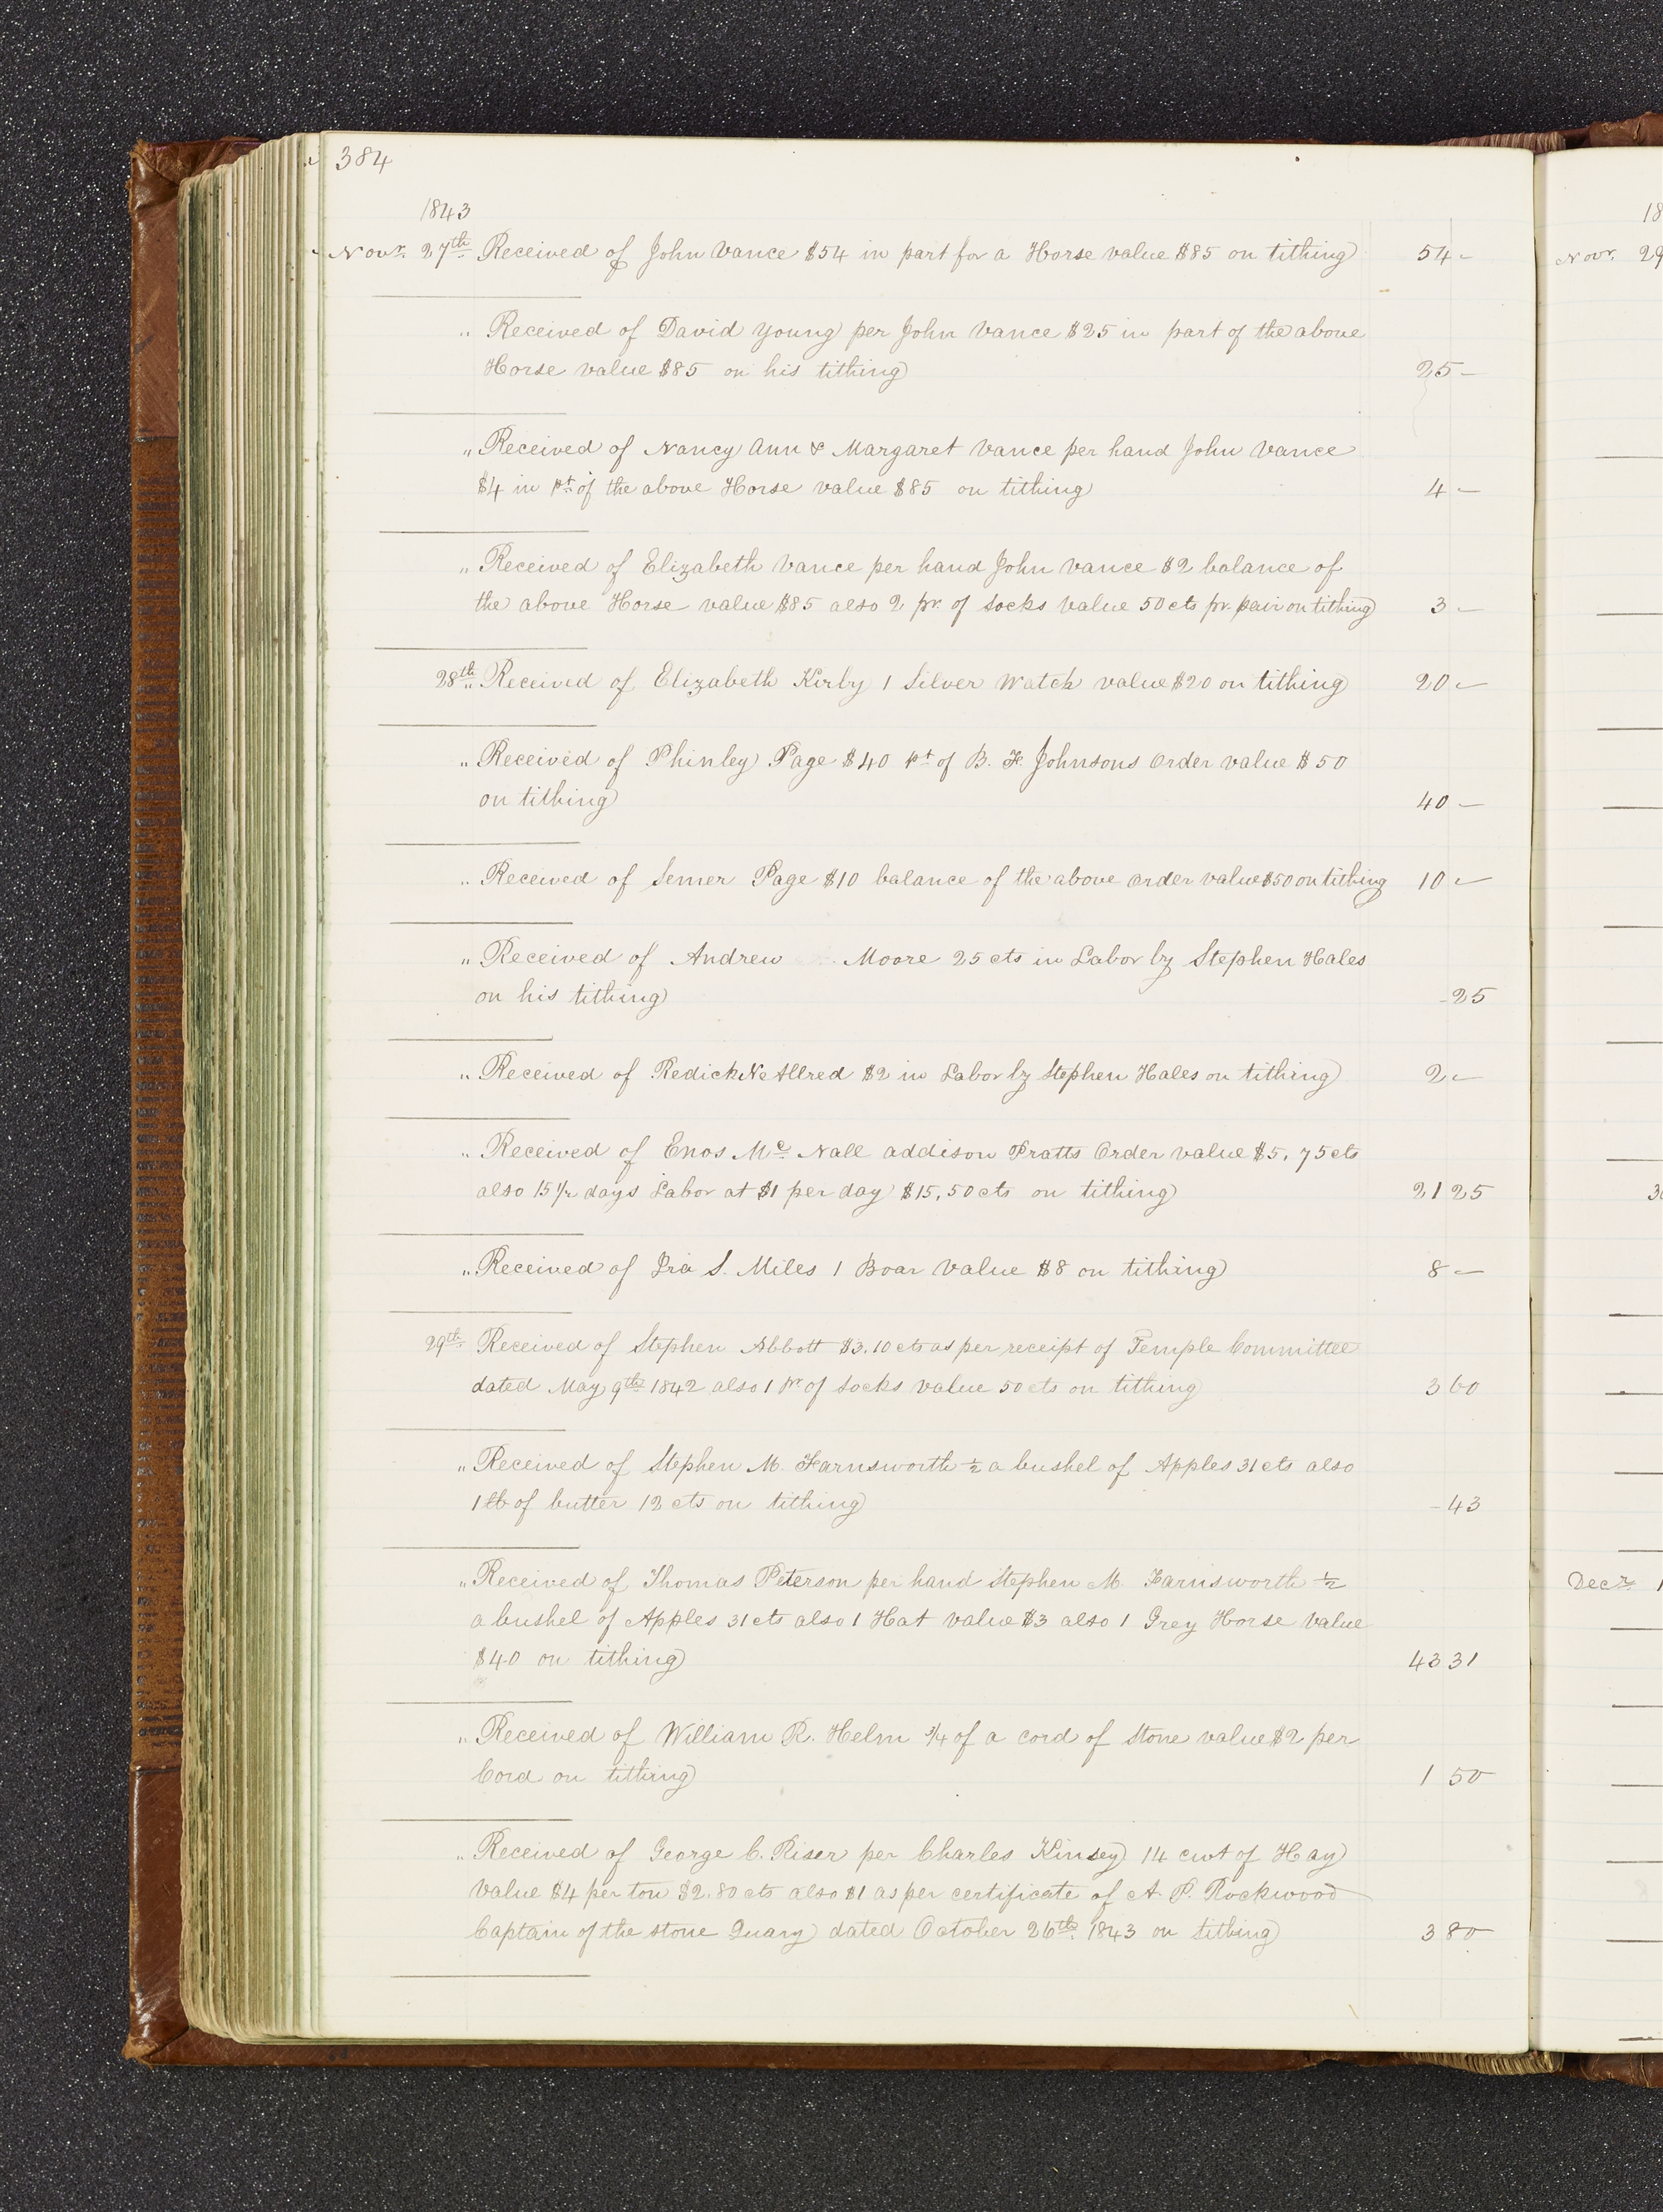 384
1843
Novr. 27th Received of John Vance $54 in part for a Horse value $85 on tithing 54 –
" Received of David Young per John Vance $25 in part of the above
Horse value $85 on his tithing 25 –
" Received of Nancy Ann & Margaret Vance per hand John Vance
$4 in pt of the above Horse value $85 on tithing 4 –
" Received of Elizabeth Vance per hand John Vance $2 balance of
the above Horse value $85 also 2 pr. of Socks value 50 cts pr. pair on tithing 3 –
28th " Received of Elizabeth Kirby 1 Silver Watch value $20 on tithing 20 –
" Received of Phinley Page $40 pt of B. F. Johnsons Order value $50
on tithing 40 –
" Received of Semer Page $10 balance of the above order value $50 on tithing 10 –
" Received of Andrew Moore 25 cts in Labor by Stephen Hales
on his tithing - 25
" Received of Redick N. Allred $2 in Labor by Stephen Hales on tithing 2 –
" Received of Enos Mc Nall addison Pratts Order value $5, 75 cts
also 15 1/2 days Labor at $1 per day $15, 50 cts on tithing 21 25
" Received of Ira S. Miles 1 Boar value $8 on tithing 8 –
29th Received of Stephen Abbott $3.10 cts as per receipt of Temple Committee
dated May 9th 1842 also 1 pr of Socks value 50 cts on tithing 3 60
" Received of Stephen M. Farnsworth 1/2 a bushel of Apples 31 cts also
1 lb of butter 12 cts on tithing - 43
" Received of Thomas Peterson per hand Stephen M. Farnsworth 1/2
a bushel of Apples 31 cts also 1 Hat value $3 also 1 Grey Horse value
$40 on tithing 43 31
" Received of William R. Helm 3/4 of a cord of Stone value $2 per
Cord on tithing 1 50
" Received of George C. Riser per Charles Kinsey 14 cwt of Hay
value $4 per ton $2.80 cts also $1 as per certificate of A. P. Rockwood
Captain of the stone Quary dated October 26th 1843 on tithing 3 80
18
Novr. 29
Decr. 1